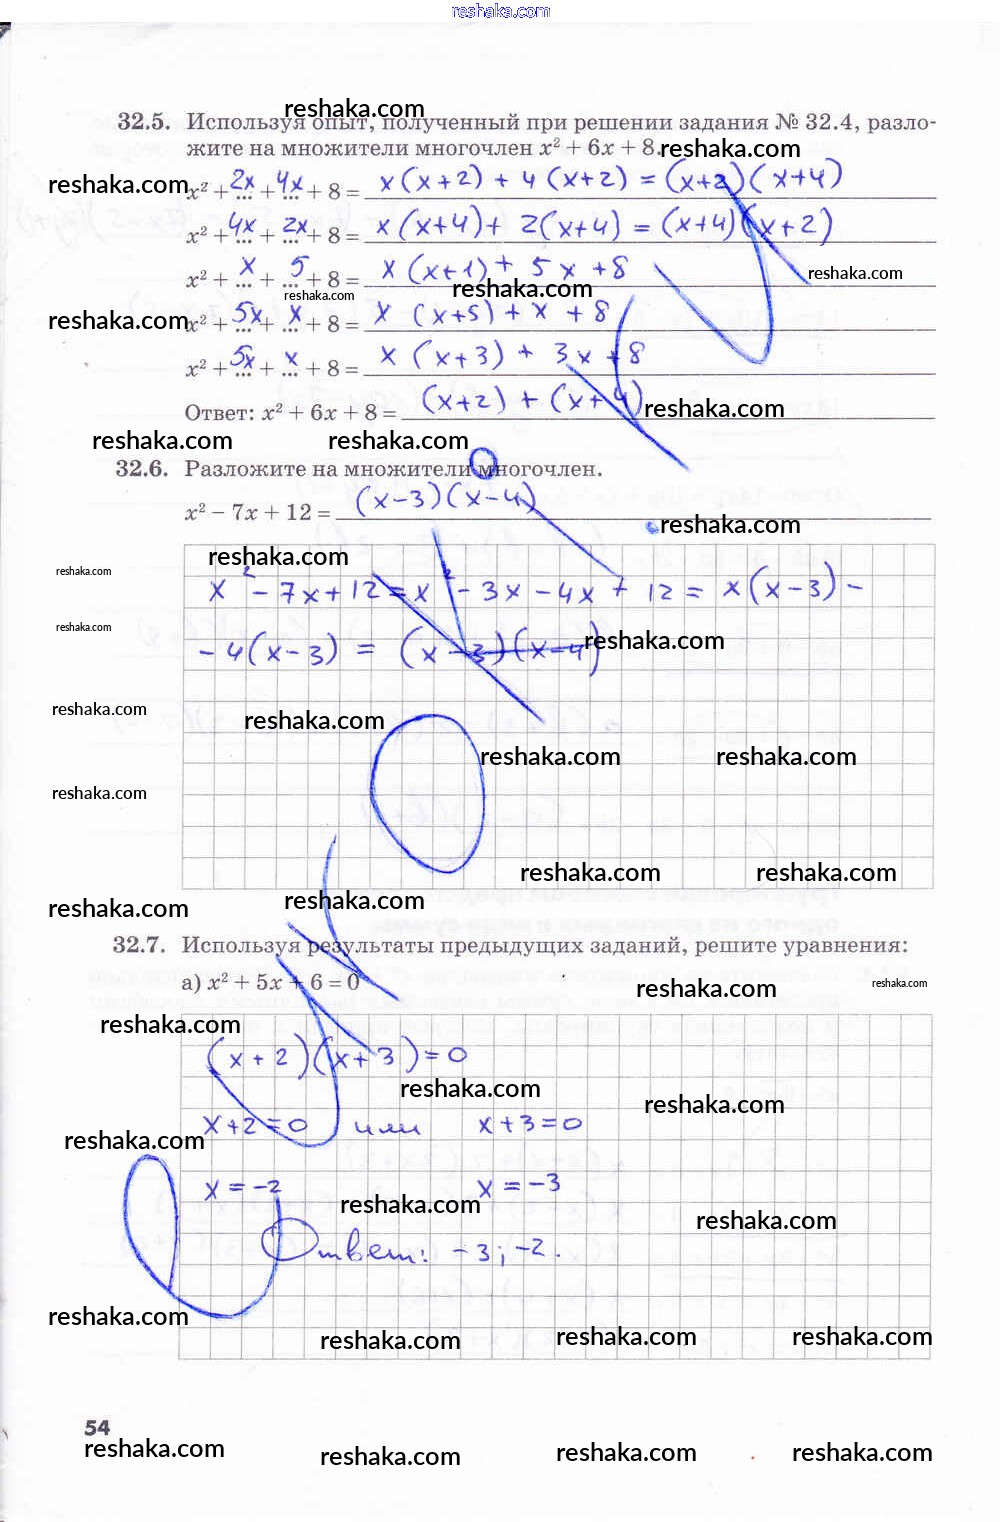 reshaka.com
reshaka.com
32.5. Используя опыт, полученный при решении задания № 32.4, разло-
жите на множители многочлен x² + 6x + 8. reshaka.com
reshaka.com x² + 2x + 4x + 8 = x(x+2) + 4(x+2) = (x+2)(x+4)
x² + 4x + 2x + 8 = x(x+4) + 2(x+4) = (x+4)(x+2)
x² + x + 5 + 8 = x(x+1) + 5x + 8 reshaka.com
reshaka.com reshaka.com
reshaka.com x² + 5x + x + 8 = x(x+5) + x + 8
x² + 5x + x + 8 = x(x+3) + 3x + 8
Ответ: x² + 6x + 8 = (x+2) + (x+4) reshaka.com
reshaka.com reshaka.com
32.6. Разложите на множители многочлен.
x² − 7x + 12 = (x−3)(x−4) reshaka.com
reshaka.com
reshaka.com
x² − 7x + 12 = x² − 3x − 4x + 12 = x(x−3) −
reshaka.com reshaka.com
− 4(x−3) = (x−3)(x−4)
reshaka.com reshaka.com
reshaka.com reshaka.com
reshaka.com
reshaka.com reshaka.com
reshaka.com reshaka.com
32.7. Используя результаты предыдущих заданий, решите уравнения:
а) x² + 5x + 6 = 0 reshaka.com reshaka.com
reshaka.com
(x+2)(x+3)=0
reshaka.com reshaka.com
x+2=0 или x+3=0
reshaka.com
x=−2 x=−3
reshaka.com reshaka.com
Ответ: −3; −2.
reshaka.com
reshaka.com reshaka.com reshaka.com
54
reshaka.com reshaka.com reshaka.com reshaka.com